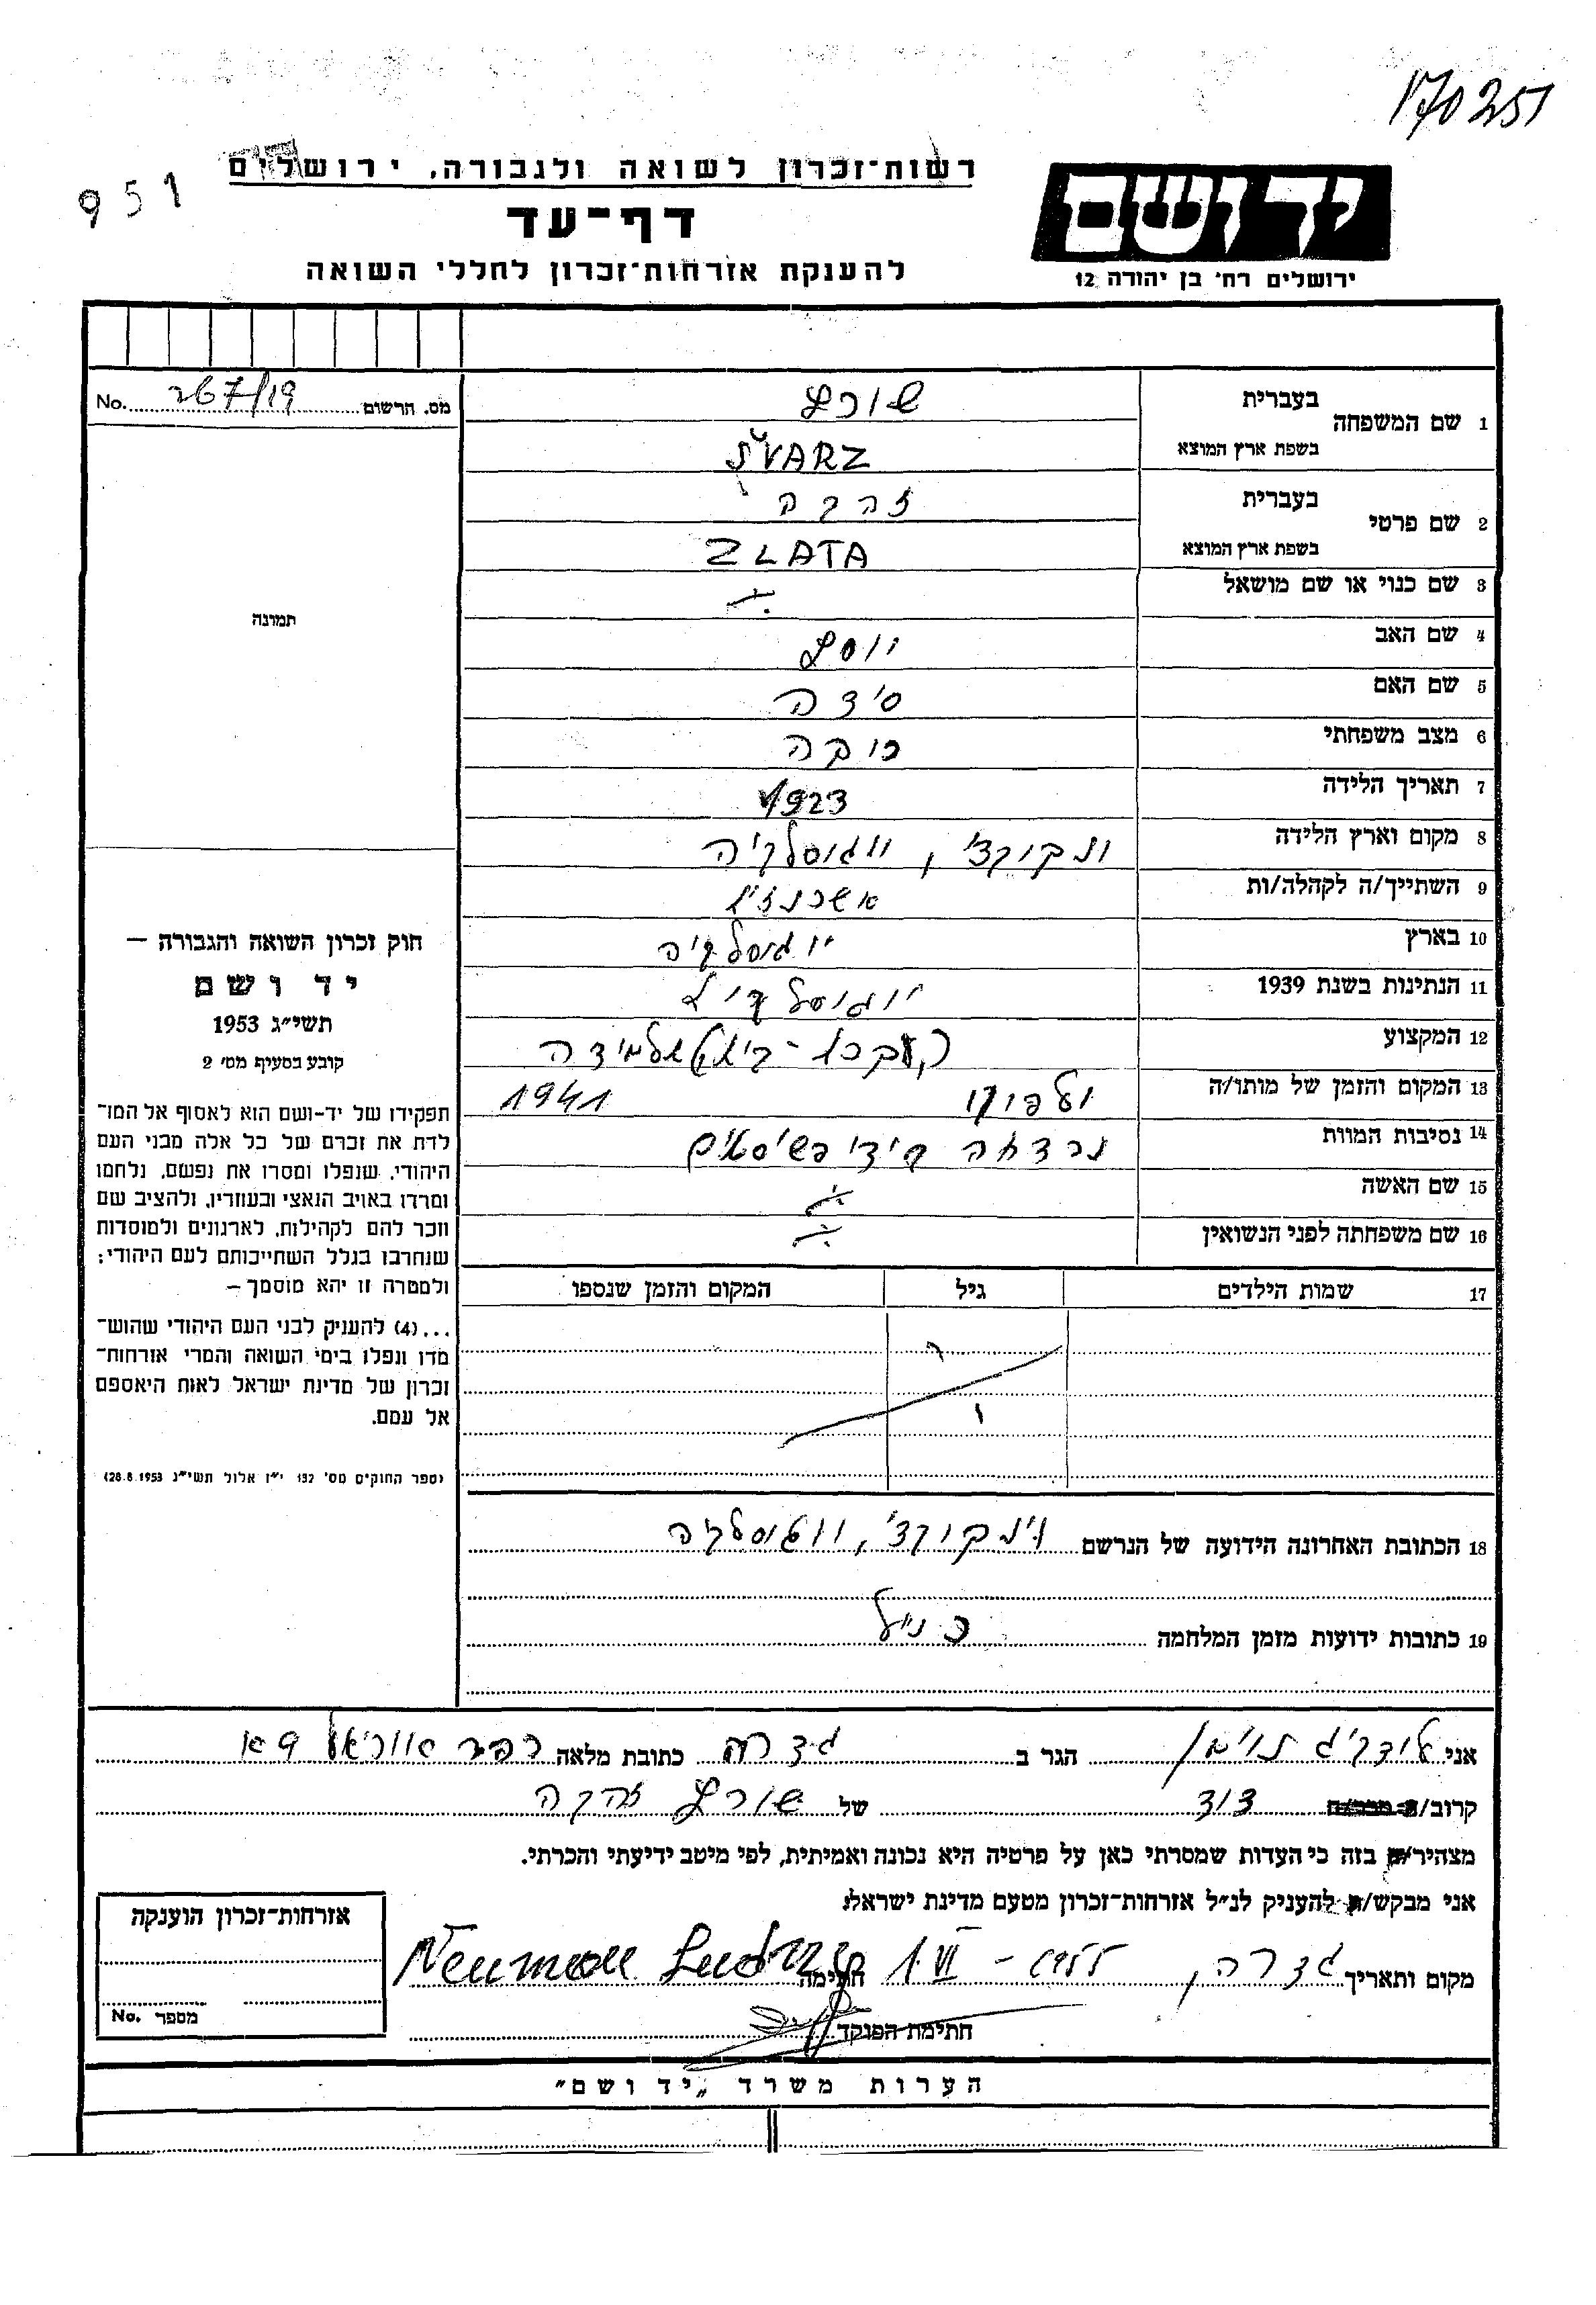 170251
951
רשות־זכרון לשואה ולגבורה, ירושלים
דף־עד
להענקת אזרחות־זכרון לחללי השואה
יד ושם
ירושלים רח׳ בן יהודה 12
מס. הרשום 267/19 No.
1 שם המשפחה בעברית שורץ
בשפת ארץ המוצא ŠVARZ
2 שם פרטי בעברית זהבה
בשפת ארץ המוצא ZLATA
3 שם כנוי או שם מושאל
4 שם האב יוסף
5 שם האם
6 מצב משפחתי רוקה
7 תאריך הלידה 1923
8 מקום וארץ הלידה וינקובצי, יוגוסלביה
9 השתייך/ה לקהלה/ות אשכנזית
10 בארץ יוגוסלביה
11 הנתינות בשנת 1939 יוגוסלבית
12 המקצוע
13 המקום והזמן של מותו/ה 1941
14 נסיבות המוות נרצחה בידי פשיסטים
15 שם האשה
16 שם משפחתה לפני הנשואין
17 שמות הילדים גיל המקום והזמן שנספו
18 הכתובת האחרונה הידועה של הנרשם וינקובצי, יוגוסלביה
19 כתובות ידועות מזמן המלחמה כנ״ל
תמונה
חוק זכרון השואה והגבורה –
יד ושם
תשי״ג 1953
קובע בסעיף מס׳ 2
תפקידו של יד-ושם הוא לאסוף אל המו־
לדת את זכרם של כל אלה מבני העם
היהודי, שנפלו ומסרו את נפשם, נלחמו
ומרדו באויב הנאצי ובעוזריו, ולהציב שם
וזכר להם לקהילות, לארגונים ולמוסדות
שנחרבו בגלל השתייכותם לעם היהודי;
ולמטרה זו יהא מוסמך –
...(4) להעניק לבני העם היהודי שהוש־
מדו ונפלו בימי השואה והמרי אזרחות־
זכרון של מדינת ישראל לאות היאספם
אל עמם.
(ספר החוקים מס׳ 132 י״ז אלול תשי״ג 28.8.1953)
אני לודביג נוימן הגר ב גדרה כתובת מלאה
קרוב/ה מכר/ה דוד של שורץ זהבה
מצהיר/ה בזה כי העדות שמסרתי כאן על פרטיה היא נכונה ואמיתית, לפי מיטב ידיעתי והכרתי.
אני מבקש/ת להעניק לנ״ל אזרחות־זכרון מטעם מדינת ישראל.
מקום ותאריך גדרה, 1955 – VI 1 חתימה Neuman Ludvig
חתימת הפוקד
אזרחות־זכרון הוענקה
מספר No.
הערות משרד „יד ושם״